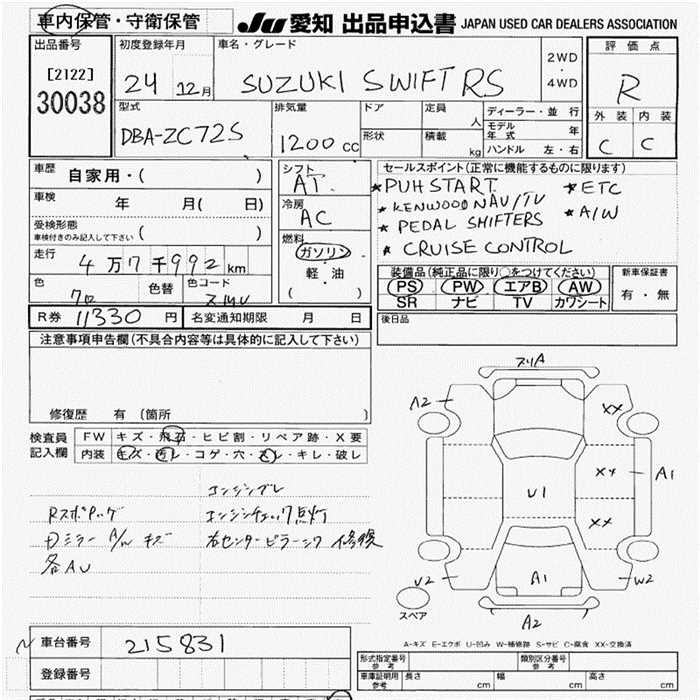 車内保管・守衛保管 JU 愛知 出品申込書 JAPAN USED CAR DEALERS ASSOCIATION
出品番号 初度登録年月 車名・グレード 2WD・4WD 評価点
[2122]
30038 24 12月 SUZUKI SWIFT RS R
外装 内装
C C
型式 排気量 ドア 定員 人 ディーラー・並行
DBA-ZC72S 1200 cc 形状 積載 kg モデル年式 年
ハンドル 左・右
車歴 自家用・( )
シフト AT
セールスポイント(正常に機能するものに限ります)
*PUH START *ETC
*KENWOOD NAV/TV *A/W
*PEDAL SHIFTERS
*CRUISE CONTROL
車検 年 月( 日)
冷房 AC
受検形態
車検付きのみ記入して下さい ( )
燃料 ガソリン
軽・油
( )
走行 4万7千992km
色 色替 色コード
クロ ZMV
装備品(純正品に限り○をつけてください) 新車保証書
PS PW エアB AW 有・無
SR ナビ TV カワシート
R券 11330円 名変通知期限 月 日 後日品
注意事項申告欄(不具合内容等は具体的に記入して下さい)
修復歴 有 (箇所 )
検査員記入欄 FW キズ・飛石・ヒビ割・リペア跡・X要
内装 キズ・汚レ・コゲ・穴・スレ・キレ・破レ
エンジンブレ
エンジンチェック点灯
Dミラー A/W キズ 右センターピラーインワ 修復
各AU
スリA
A2 XX
XX A1
U1
XX
U2 A1 W2
A2
スペア
A-キズ E-エクボ U-凹み W-補修跡 S-サビ C-腐食 XX-交換済
車台番号 215831
登録番号
形式指定番号参考 類別区分番号参考
車庫証明用参考 長さ cm 幅 cm 高さ cm